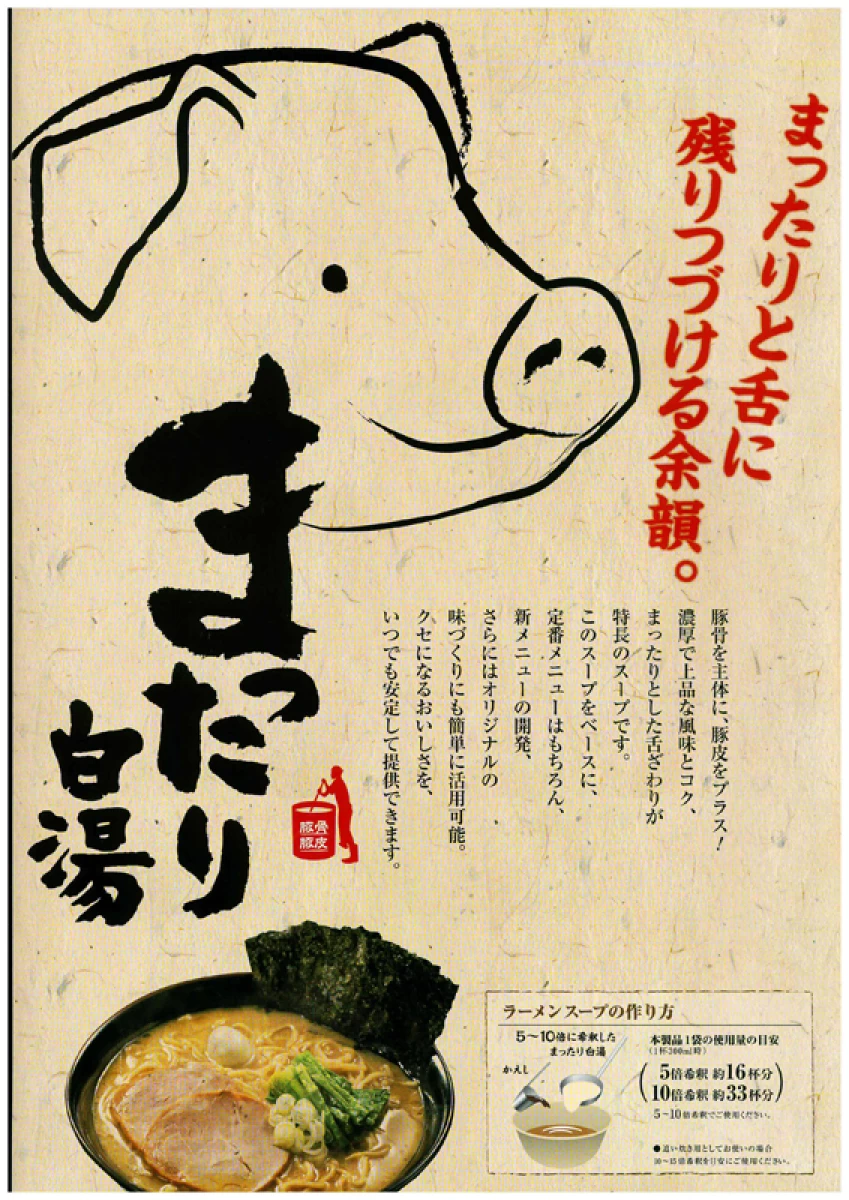 まったりと舌に
残りつづける余韻。
豚骨を主体に、豚皮をプラス!
濃厚で上品な風味とコク、
まったりとした舌ざわりが
特長のスープです。
このスープをベースに、
定番メニューはもちろん、
新メニューの開発、
さらにはオリジナルの
味づくりにも簡単に活用可能。
クセになるおいしさを、
いつでも安定して提供できます。
まったり
白湯
豚骨
豚皮
ラーメンスープの作り方
5〜10倍に希釈した
まったり白湯
かえし
本製品1袋の使用量の目安
(1杯300ml時)
5倍希釈 約16杯分
10倍希釈 約33杯分
5〜10倍希釈でご使用ください。
●追い炊き用としてお使いの場合
10〜15倍希釈を目安にご使用ください。